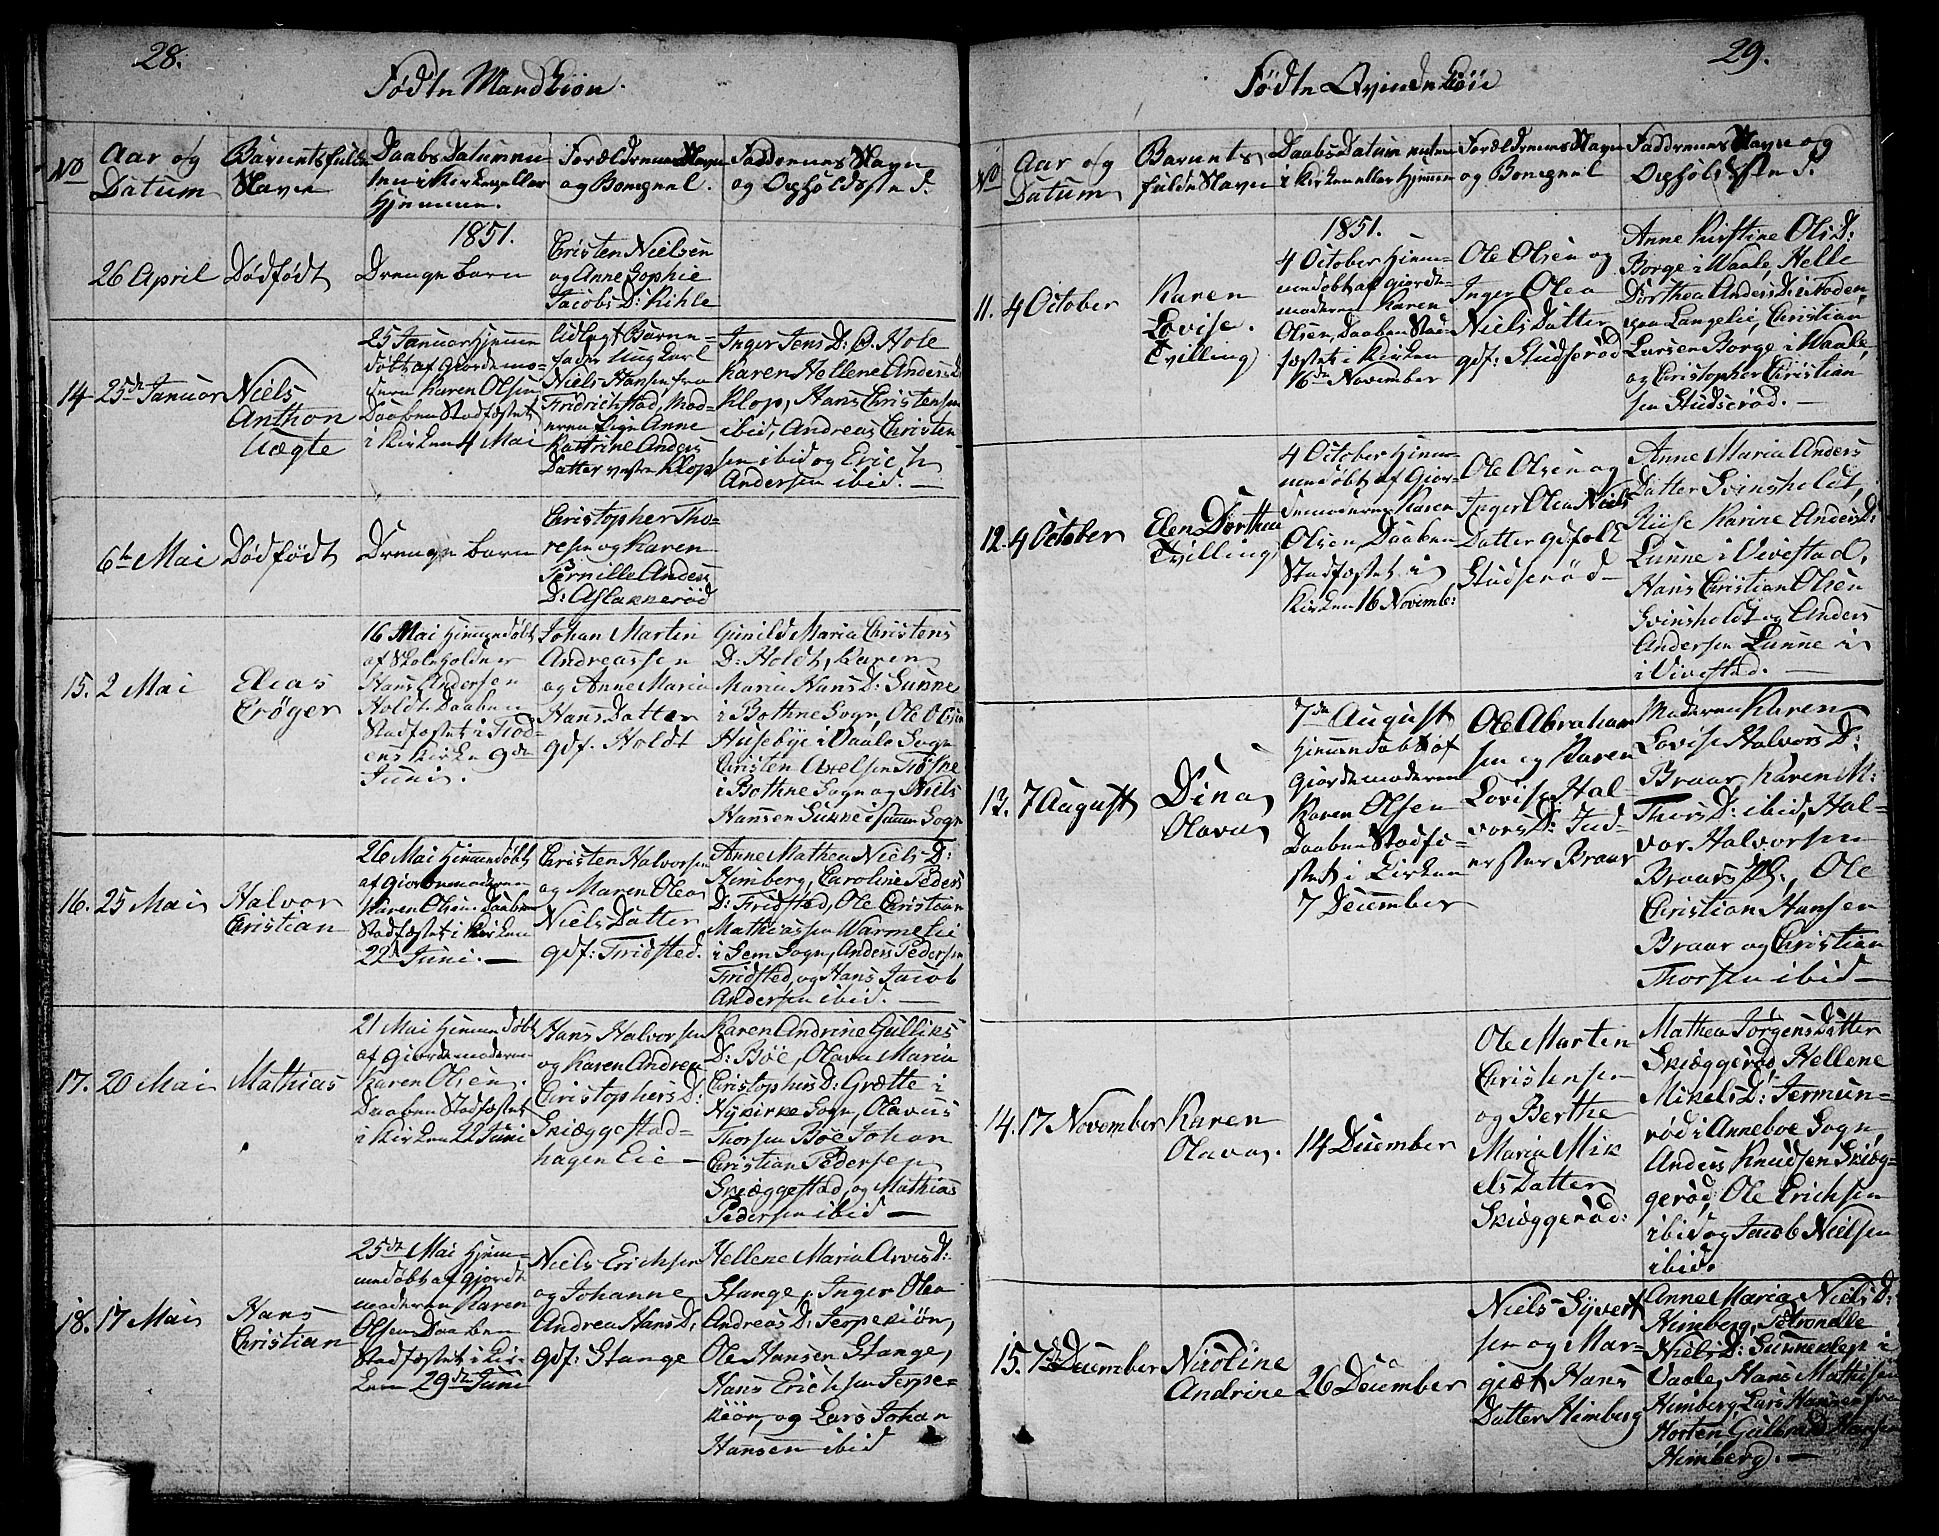 28.
Födte Mandkiön.
No
Aar og
Datum
Barnets fulde
Navn
Daabs Datum en-
ten i Kirken eller
Hjemme.
Forældrenes Navn
og Bonæpel.
Faddrenes Navn
og Opholdssted.
1851.
26 April
Dödfödt
Drengebarn
Christen Nielsen
og Anne Sophie
Jacobs D: Kihle
14
25de Januar
Niels
Anthon
Uægte
25 Januar Hjemme
döbt af Giordemo-
deren Karen Olsen
Daaben Stadfæstet
i Kirken 4 Mai
Udlagt Barne-
fader Ung Carl
Niels Hansen fra
Fridrichstad, Mod-
eren Pige Anne
Kattrine Anders
Datter vestre Klop
Inger Jens D: Ø. Hole
Karen Hellene Anders D
Klop, Hans Christensen
ibid, Andreas Christen
sen ibid og Erich
Andersen ibid. —
6te Mai
Dödfödt
Drengebarn
Christopher Tho-
resen og Karen
Pernille Anders
D: Aslakkeröd
15.
2 Mai
Elias
Cröger
16 Mai Hjemmedöbt
af Skoleholder
Hans Andersen
Holdt Daaben
Stadfæstet i Fiod-
ens Kirke 9de
Juni.
Johan Martin
Andreassen
og Anne Maria
Hans Datter
gdf. Holdt
Gunild Maria Christens
D: Holdt, Karen
Maria Hans D: Sukke
i Bothne Sogn, Ole Olsen
Husebye i Vaale Sogn
Christen Axelsen Fröske
i Bothne Sogn og Niels
Hansen Sukke i samme Sogn
16.
25 Mai
Halvor
Christian
26 Mai Hjemmedöbt
af Giordemoderen
Karen Olsen Daaben
Stadfæstet i Kirken
22de Juni. —
Christen Halvorsen
og Maren Olea
Niels Datter
gdf: Fridsted.
Anne Mathea Niels D:
Himberg, Caroline Peders
D: Fridstad, Ole Christian
Mathiassen Warmelie
i Sem Sogn, Anders Pedersen
Fridsted, og Hans Jacob
Andersen ibid. —
17.
20 Mai
Mathias
21 Mai Hjemmedöbt
af Giordemoderen
Karen Olsen.
Daaben Stadfæstet
i Kirken 22 Juni
Hans Halvorsen
og Karen Andrea
Christophers D:
Skiæggestad-
hagen Eie —
Karen Andrine Gulliks
D: Böe, Olava Maria
Christophers D: Grætte i
Nykirke Sogn, Olavus
Thorsen Böe Johan
Christian Pedersen
Skiæggestad, og Mathias
Pedersen ibid —
18.
17 Mai
Hans
Christian
25de Mai Hjem-
medöbt af Gjordt
moderen Karen
Olsen Daaben
Stadfæstet i Kir-
ken 29de Juni
Niels Erichsen
og Johanne
Andrea Hans D:
gdf: Stange
Hellene Maria Arvis D:
Stange, Inger Olea
Andreas D: Jerpekiön,
Ole Hansen Stange,
Hans Erichsen Jerpe-
kiön, og Lars Johan
Hansen ibid
29.
Födte Qvindekiön
No
Aar og
Datum
Barnets
fulde Navn
Daabs Datum enten
i Kirken eller Hjemme
Forældrenes Navn
og Bonæpel
Faddrenes Navn og
Opholdssted.
1851.
11.
4 October
Karen
Lovise.
Tvilling
4 October Hjem-
medöbt af Giorde
moderen Karen
Olsen, Daaben Stad
fæstet i Kirken
16de November
Ole Olsen og
Inger Olea
Niels Datter
gdf: Studseröd
Anne Kirstine Ols D:
Borge i Waale, Helle
Dorthea Anders D: i Floden,
paa Langelie, Christian
Larsen Borge i Waale,
og Christopher Christian
sen Studseröd. —
12.
4 October
Elen Dorthea
Tvilling
4 October Hjem-
medöbt af Gior-
demoderen Karen
Olsen, Daaben
Stadfæstet i
Kirken 16 Novemb:
Ole Olsen og
Inger Olea Niels
Datter gdfolk
Studseröd —
Anne Maria Anders
Datter Svinsholdt,
Riise Karine Anders D:
Lunne i Vivestad,
Hans Christian Olsen
Svinsholdt og Anders
Andersen Lunne i
i Vivestad. —
13.
7 August
Dina
Olava
7de August
Hjemmedöbt af
Giordemoderen
Karen Olsen
Daaben Stadfæ-
stet i Kirken
7 December
Ole Abraham
sen og Karen
Lovise Hal-
vors D: Ind-
erster Braar
Moderen Karen
Lovise Halvors D:
Braar Karen M:
Thors D: ibid, Hal-
vor Halvorsen
Braars, Ole
Christian Hansen
Braar og Christian
Thorsen ibid —
14.
17 November
Karen
Olava.
14 December
Ole Martin
Christensen
og Berthe
Maria Mik
els Datter
Skiæggeröd:
Mathea Jörgens Datter
Skiæggeröd, Hellene
Mikels D: Jermun-
röd i Anneboe Sogn,
Anders Knudsen Skiæg-
geröd, Ole Erichsen
ibid og Jacob Nielsen
ibid.
15.
7de December
Nicoline
Andrine
26 December
Niels Syvert
sen og Mar-
giæt Hans
Datter Himberg
Anne Maria Niels D:
Himberg, Petronelle
Niels D: Sunneklep i
Vaale, Hans Mathisen
Himberg, Lars Hansen fra
Horten, Gulbrand Hansen
Himberg. —